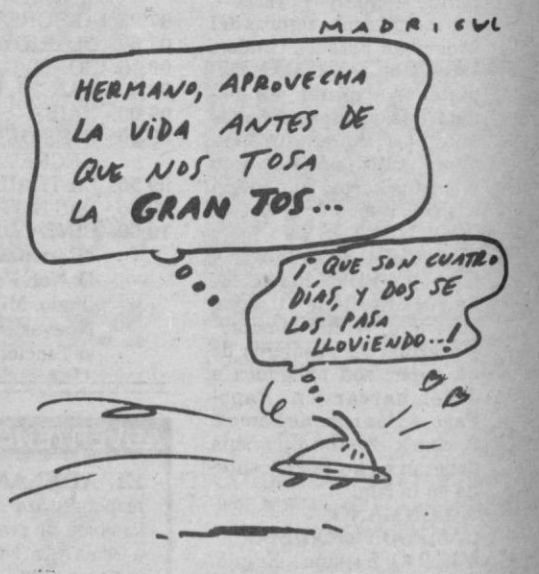 MADRICUL
HERMANO, APROVECHA
LA VIDA ANTES DE
QUE NOS TOSA
LA GRAN TOS...
¡QUE SON CUATRO
DÍAS, Y DOS SE
LOS PASA
LLOVIENDO..!